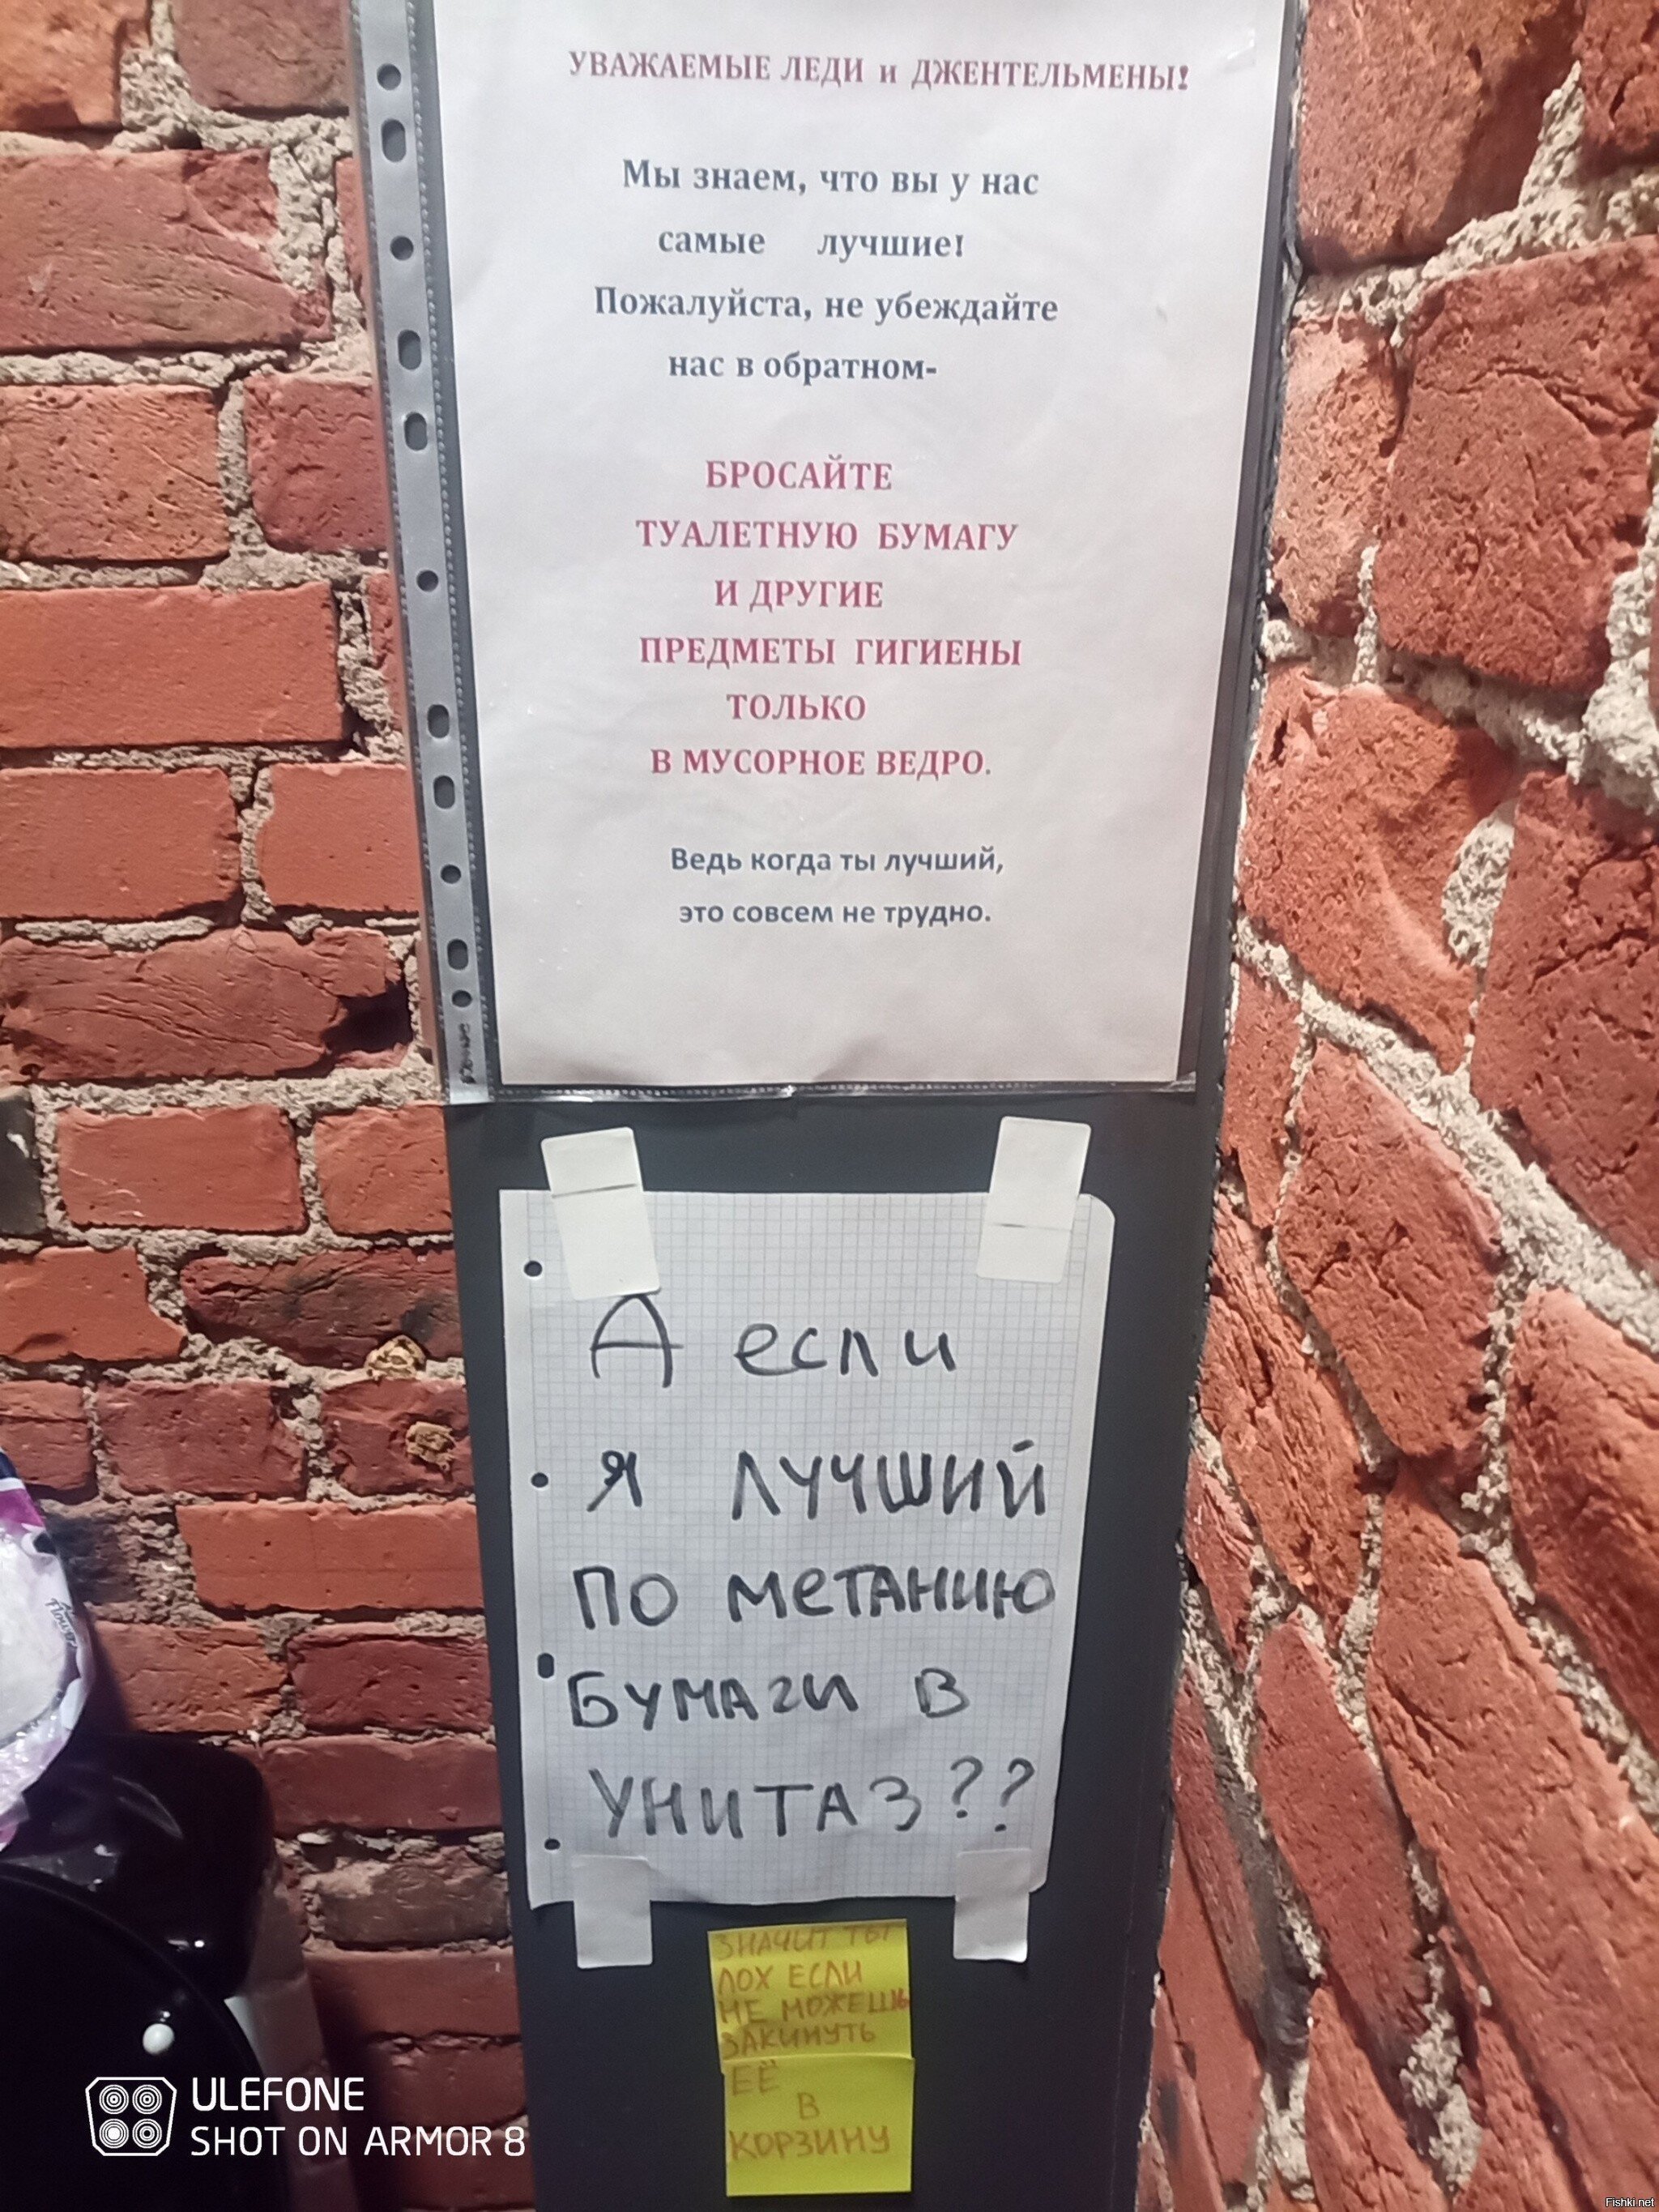 УВАЖАЕМЫЕ ЛЕДИ и ДЖЕНТЕЛЬМЕНЫ!
Мы знаем, что вы у нас
самые лучшие!
Пожалуйста, не убеждайте
нас в обратном-
БРОСАЙТЕ
ТУАЛЕТНУЮ БУМАГУ
И ДРУГИЕ
ПРЕДМЕТЫ ГИГИЕНЫ
ТОЛЬКО
В МУСОРНОЕ ВЕДРО.
Ведь когда ты лучший,
это совсем не трудно.
А если
я лучший
по метанию
бумаги в
унитаз??
ЗНАЧИТ ТЫ
ЛОХ ЕСЛИ
НЕ МОЖЕШЬ
ЗАКИНУТЬ
ЕЁ
В
КОРЗИНУ
Flower
ULEFONE
SHOT ON ARMOR 8
Fishki.net